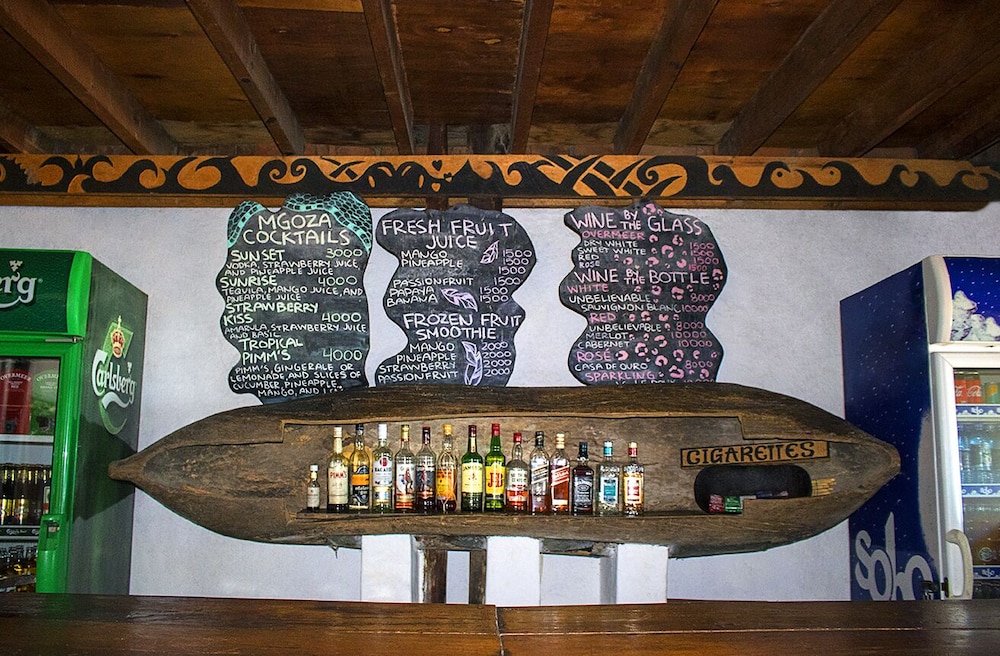 MGOZA
COCKTAILS
SUNSET 3000
VODKA, STRAWBERRY JUICE
AND PINEAPPLE JUICE
SUNRISE 4000
TEQUILA, MANGO JUICE, AND
PINEAPPLE JUICE
STRAWBERRY
KISS 4000
AMARULA, STRAWBERRY JUICE
AND BASIL
TROPICAL
PIMM'S 4000
PIMM'S, GINGERALE OR
LEMONADE AND SLICES OF
CUCUMBER, PINEAPPLE,
MANGO, AND
FRESH FRUIT
JUICE
MANGO 1500
PINEAPPLE 1500
1500
PASSIONFRUIT 1500
PAPAYA 1500
BANANA 1500
FROZEN FRUIT
SMOOTHIE
MANGO 2000
PINEAPPLE 2000
STRAWBERRY 2000
PASSIONFRUIT 2000
WINE BY THE GLASS
OVERMEER
DRY WHITE 1500
SWEET WHITE 1500
RED 1500
ROSE 1500
WINE BY THE BOTTLE
WHITE
UNBELIEVABLE 8000
SAUVIGNON BLANC 10000
RED
UNBELIEVABLE 8000
MERLOT 10000
CABERNET 10000
ROSÉ
CASA DE OURO 8000
SPARKLING
CIGARETTES
Carlsberg
rg
OVERMEER
PIMM'S
BACARDI
JAMESON
J&B
Coca-Cola
sobo